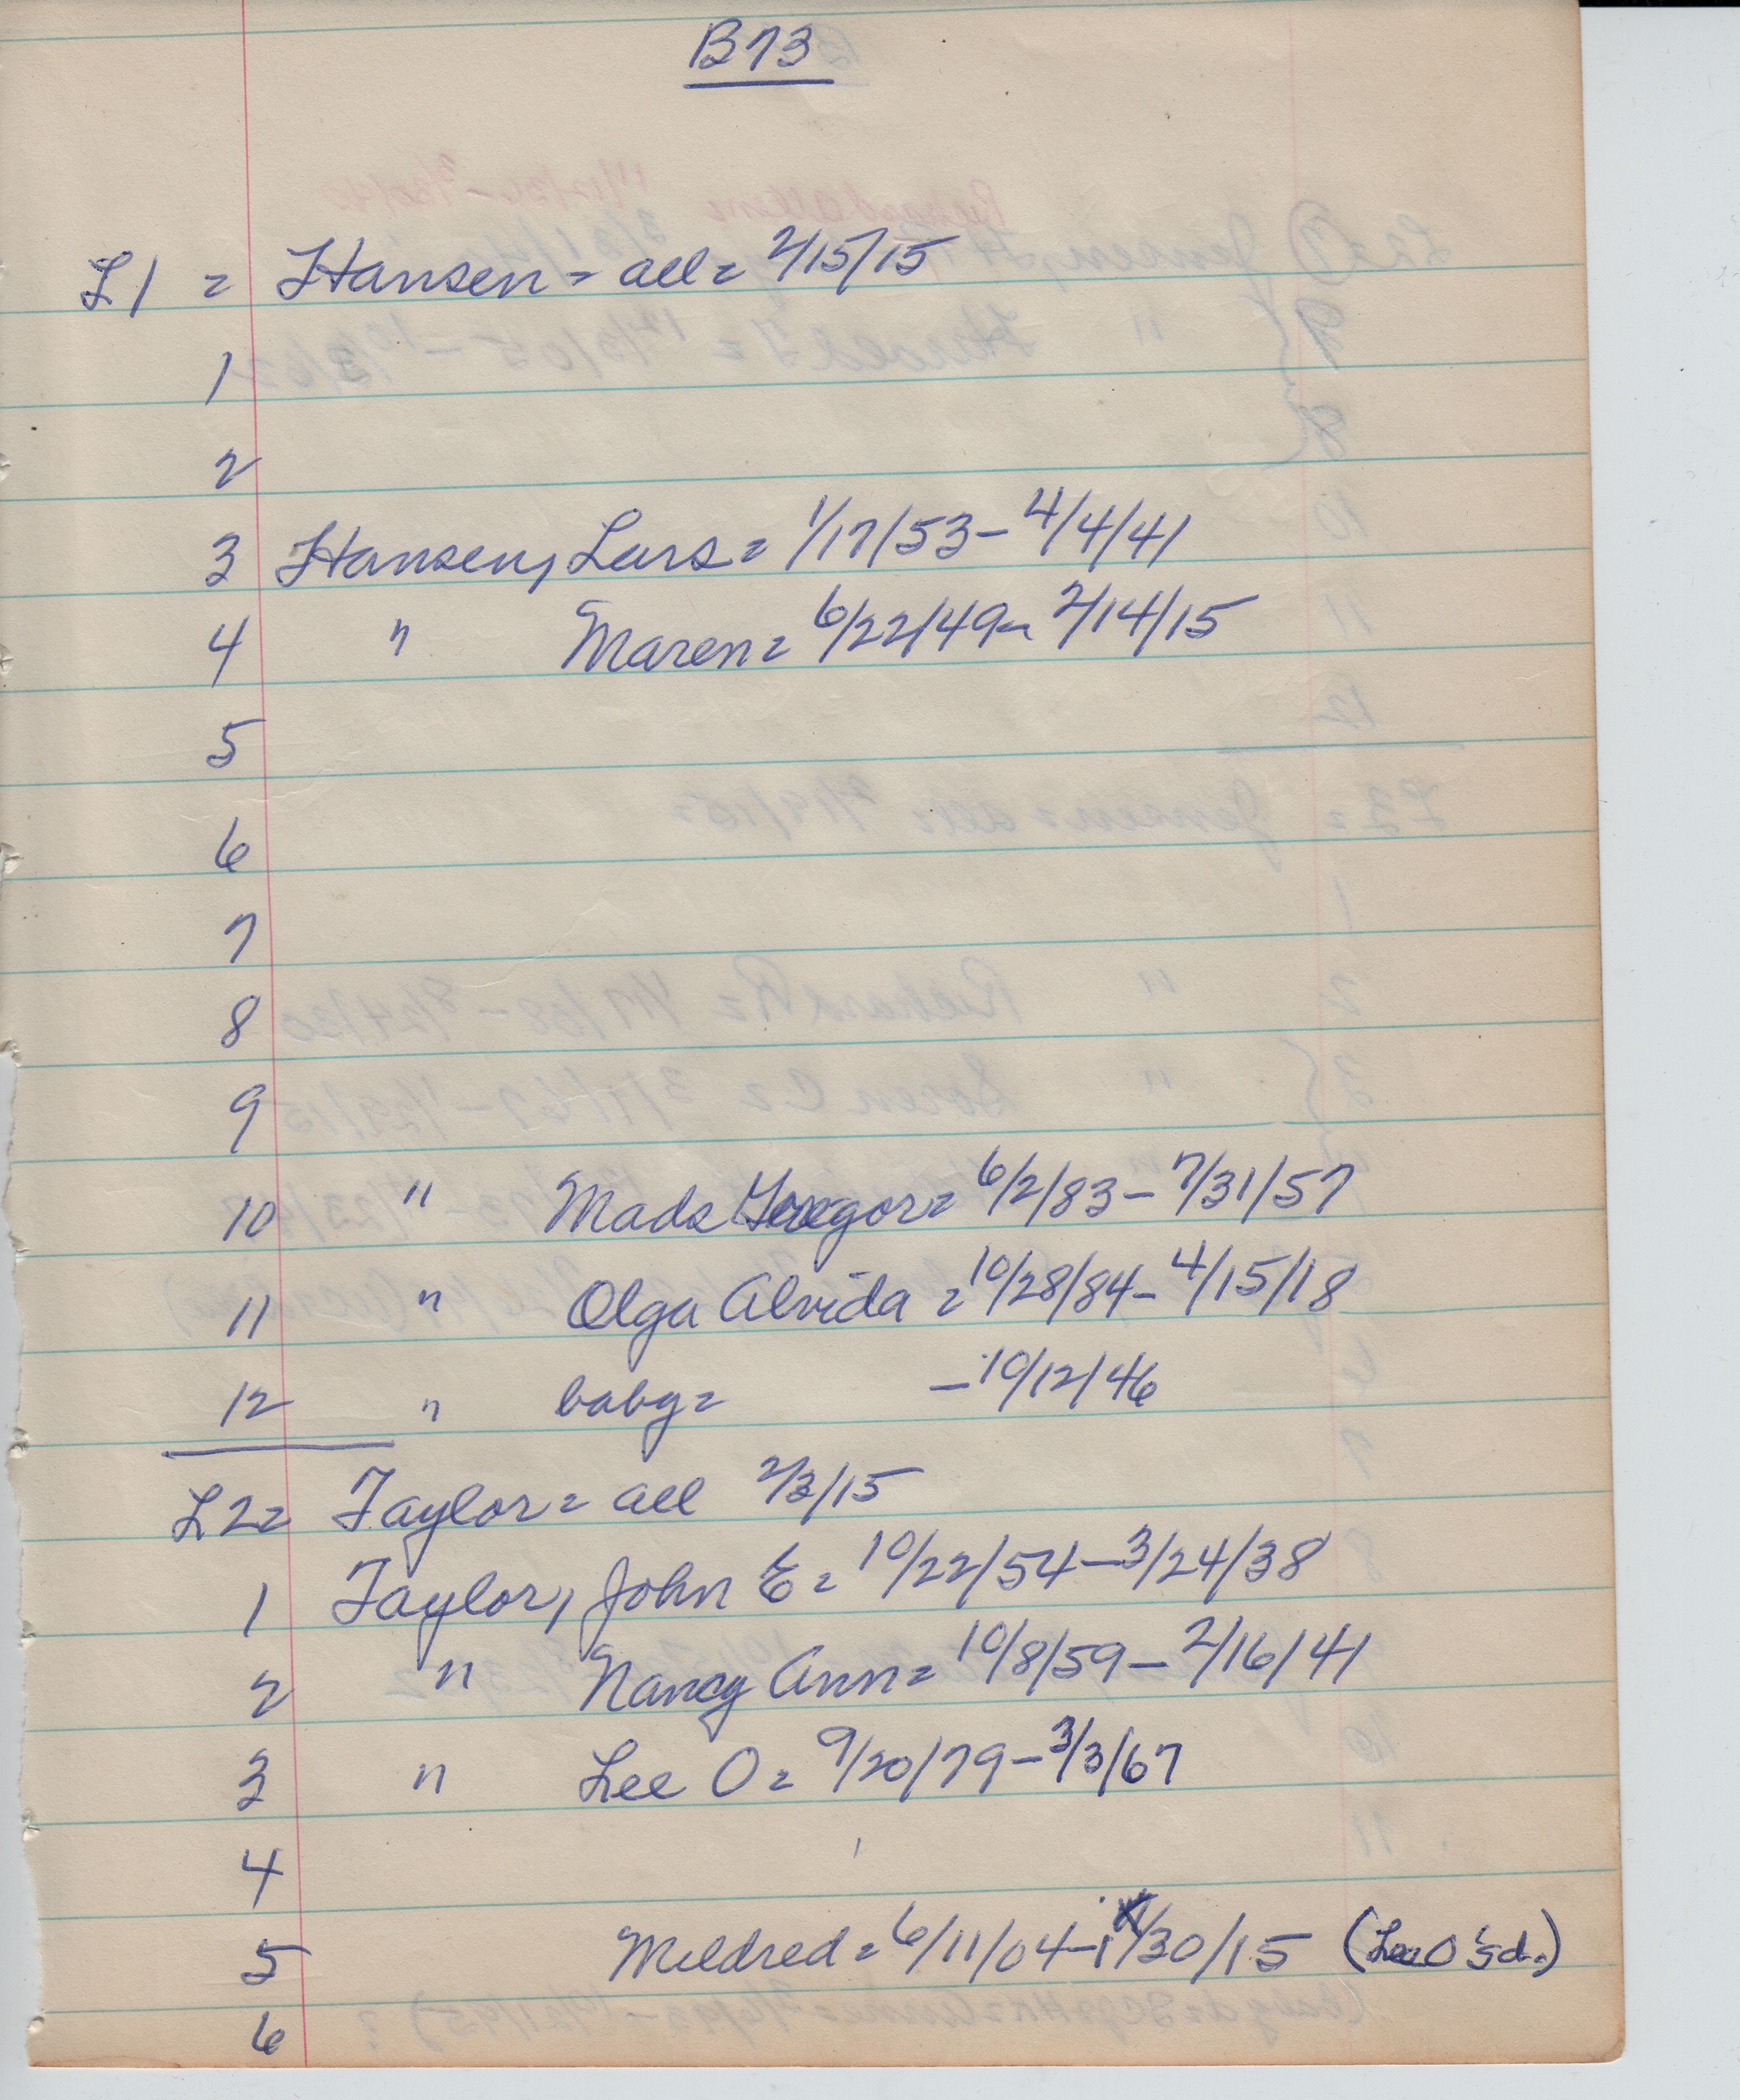 B73
L1 = Hansen = all = 2/15/15
1
2
3 Hansen, Lars = 1/17/53 - 4/4/41
4 " Maren = 6/22/49 - 2/14/15
5
6
7
8
9
10 " Mads Gregor = 6/2/83 - 7/31/57
11 " Olga Alvida = 10/28/84 - 4/15/18
12 " baby = - 10/12/46
L2 = Taylor = all 2/3/15
1 Taylor, John E = 10/22/54 - 3/24/38
2 " Nancy Ann = 10/8/59 - 2/16/41
3 " Lee O = 9/20/79 - 3/3/67
4
5 Mildred = 6/11/04 - 1/30/15 (Lee O's d.)
6